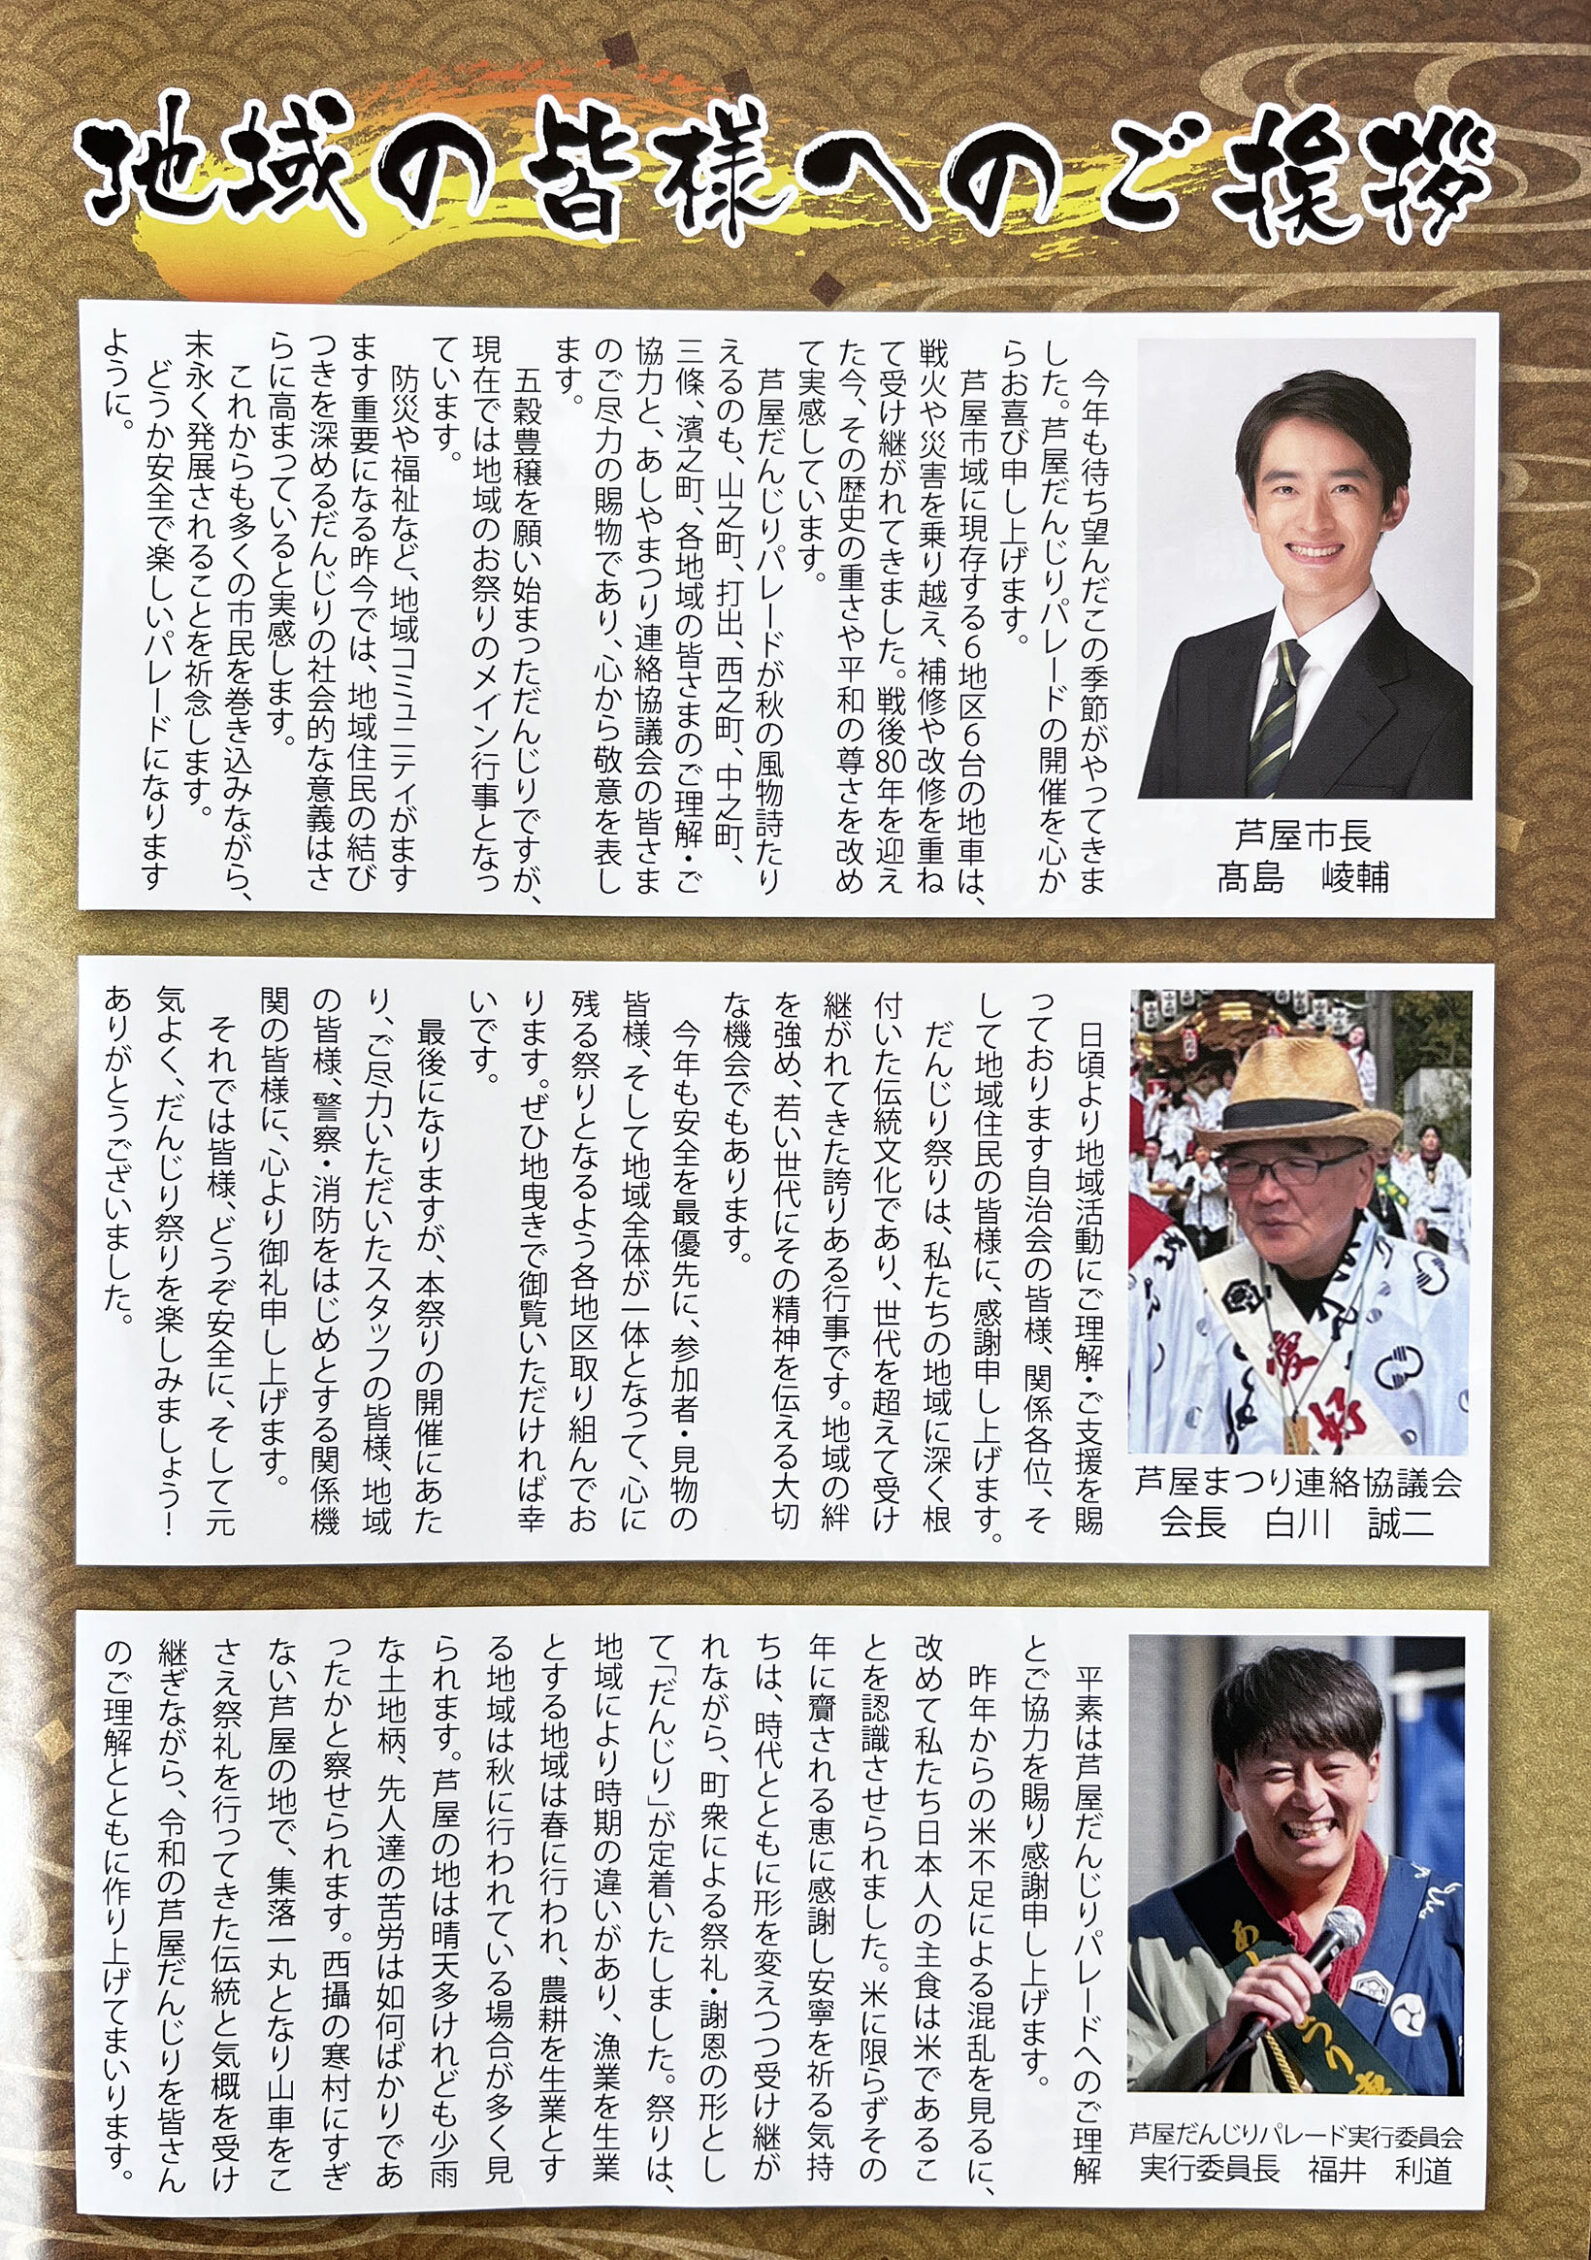 地域の皆様へのご挨拶
芦屋市長
髙島　崚輔
今年も待ち望んだこの季節がやってきま
した。芦屋だんじりパレードの開催を心か
らお喜び申し上げます。
芦屋市域に現存する6地区6台の地車は、
戦火や災害を乗り越え、補修や改修を重ね
て受け継がれてきました。戦後80年を迎え
た今、その歴史の重さや平和の尊さを改め
て実感しています。
芦屋だんじりパレードが秋の風物詩たり
えるのも、山之町、打出、西之町、中之町、
三條、濱之町、各地域の皆さまのご理解・ご
協力と、あしやまつり連絡協議会の皆さま
のご尽力の賜物であり、心から敬意を表し
ます。
五穀豊穣を願い始まっただんじりですが、
現在では地域のお祭りのメイン行事となっ
ています。
防災や福祉など、地域コミュニティがます
ます重要になる昨今では、地域住民の結び
つきを深めるだんじりの社会的な意義はさ
らに高まっていると実感します。
これからも多くの市民を巻き込みながら、
末永く発展されることを祈念します。
どうか安全で楽しいパレードになります
ように。
芦屋まつり連絡協議会
会長　白川　誠二
日頃より地域活動にご理解・ご支援を賜
っております自治会の皆様、関係各位、そ
して地域住民の皆様に、感謝申し上げます。
だんじり祭りは、私たちの地域に深く根
付いた伝統文化であり、世代を超えて受け
継がれてきた誇りある行事です。地域の絆
を強め、若い世代にその精神を伝える大切
な機会でもあります。
今年も安全を最優先に、参加者・見物の
皆様、そして地域全体が一体となって、心に
残る祭りとなるよう各地区取り組んでお
ります。ぜひ地曳きで御覧いただければ幸
いです。
最後になりますが、本祭りの開催にあた
り、ご尽力いただいたスタッフの皆様、地域
の皆様、警察・消防をはじめとする関係機
関の皆様に、心より御礼申し上げます。
それでは皆様、どうぞ安全に、そして元
気よく、だんじり祭りを楽しみましょう！
ありがとうございました。
芦屋だんじりパレード実行委員会
実行委員長　福井　利道
平素は芦屋だんじりパレードへのご理解
とご協力を賜り感謝申し上げます。
昨年からの米不足による混乱を見るに、
改めて私たち日本人の主食は米であるこ
とを認識させられました。米に限らずその
年に齎される恵に感謝し安寧を祈る気持
ちは、時代とともに形を変えつつ受け継が
れながら、町衆による祭礼・謝恩の形とし
て「だんじり」が定着いたしました。祭りは、
地域により時期の違いがあり、漁業を生業
とする地域は春に行われ、農耕を生業とす
る地域は秋に行われている場合が多く見
られます。芦屋の地は晴天多けれども少雨
な土地柄、先人達の苦労は如何ばかりであ
ったかと察せられます。西攝の寒村にすぎ
ない芦屋の地で、集落一丸となり山車をこ
さえ祭礼を行ってきた伝統と気概を受け
継ぎながら、令和の芦屋だんじりを皆さん
のご理解とともに作り上げてまいります。